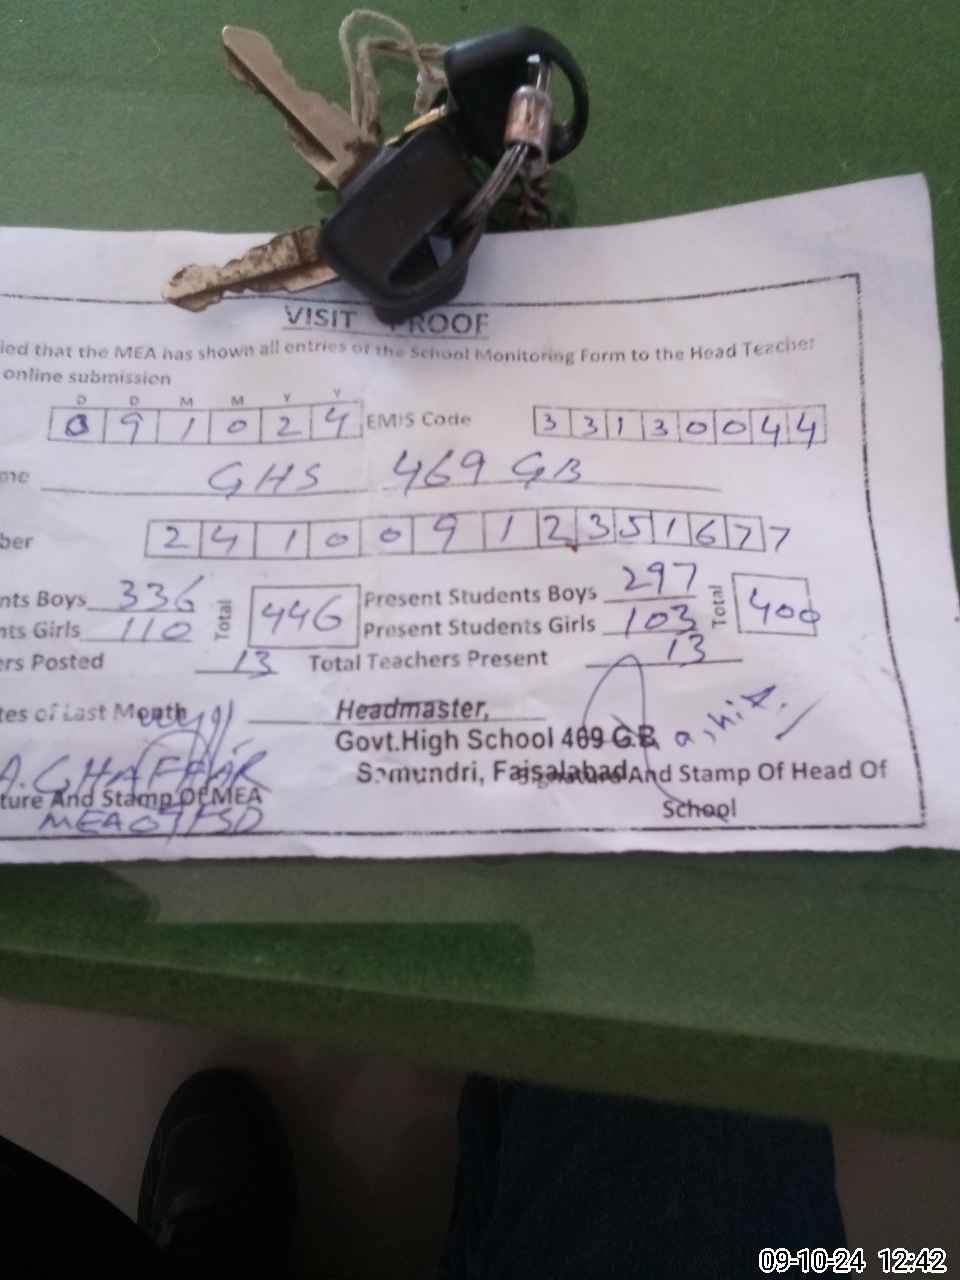 VISIT PROOF
ied that the MEA has shown all entries of the School Monitoring Form to the Head Teacher
online submission
D D M M Y Y
0 9 1 0 2 4 EMIS Code 3 3 1 3 0 0 4 4
me GHS 469 GB
ber 2 4 1 0 0 9 1 2 3 5 1 6 7 7
nts Boys 336 Total 446 Present Students Boys 297 Total 400
nts Girls 110 Present Students Girls 103
ers Posted 13 Total Teachers Present 13
tes of Last Month Headmaster,
Govt.High School 469 G.B
A.GHAFFAR Samundri, Faisalabad Signature And Stamp Of Head Of
ture And Stamp Of MEA School
MEA 07 FSD
09-10-24 12:42